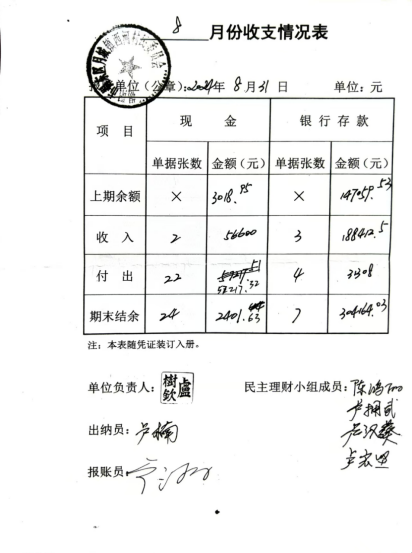 8 月份收支情况表
单位(公章): 2024年 8 月 31 日 单位:元
项 目 现 金 银 行 存 款
单据张数 金额(元) 单据张数 金额(元)
上期余额 × 3018.95 × 147059.53
收 入 2 56600 3 188412.5
付 出 22 57217.32 4 31308
期末结余 24 2401.63 7 304164.03
注:本表随凭证装订入册。
单位负责人: 盧樹欽 民主理财小组成员:
出纳员:卢楠
报账员